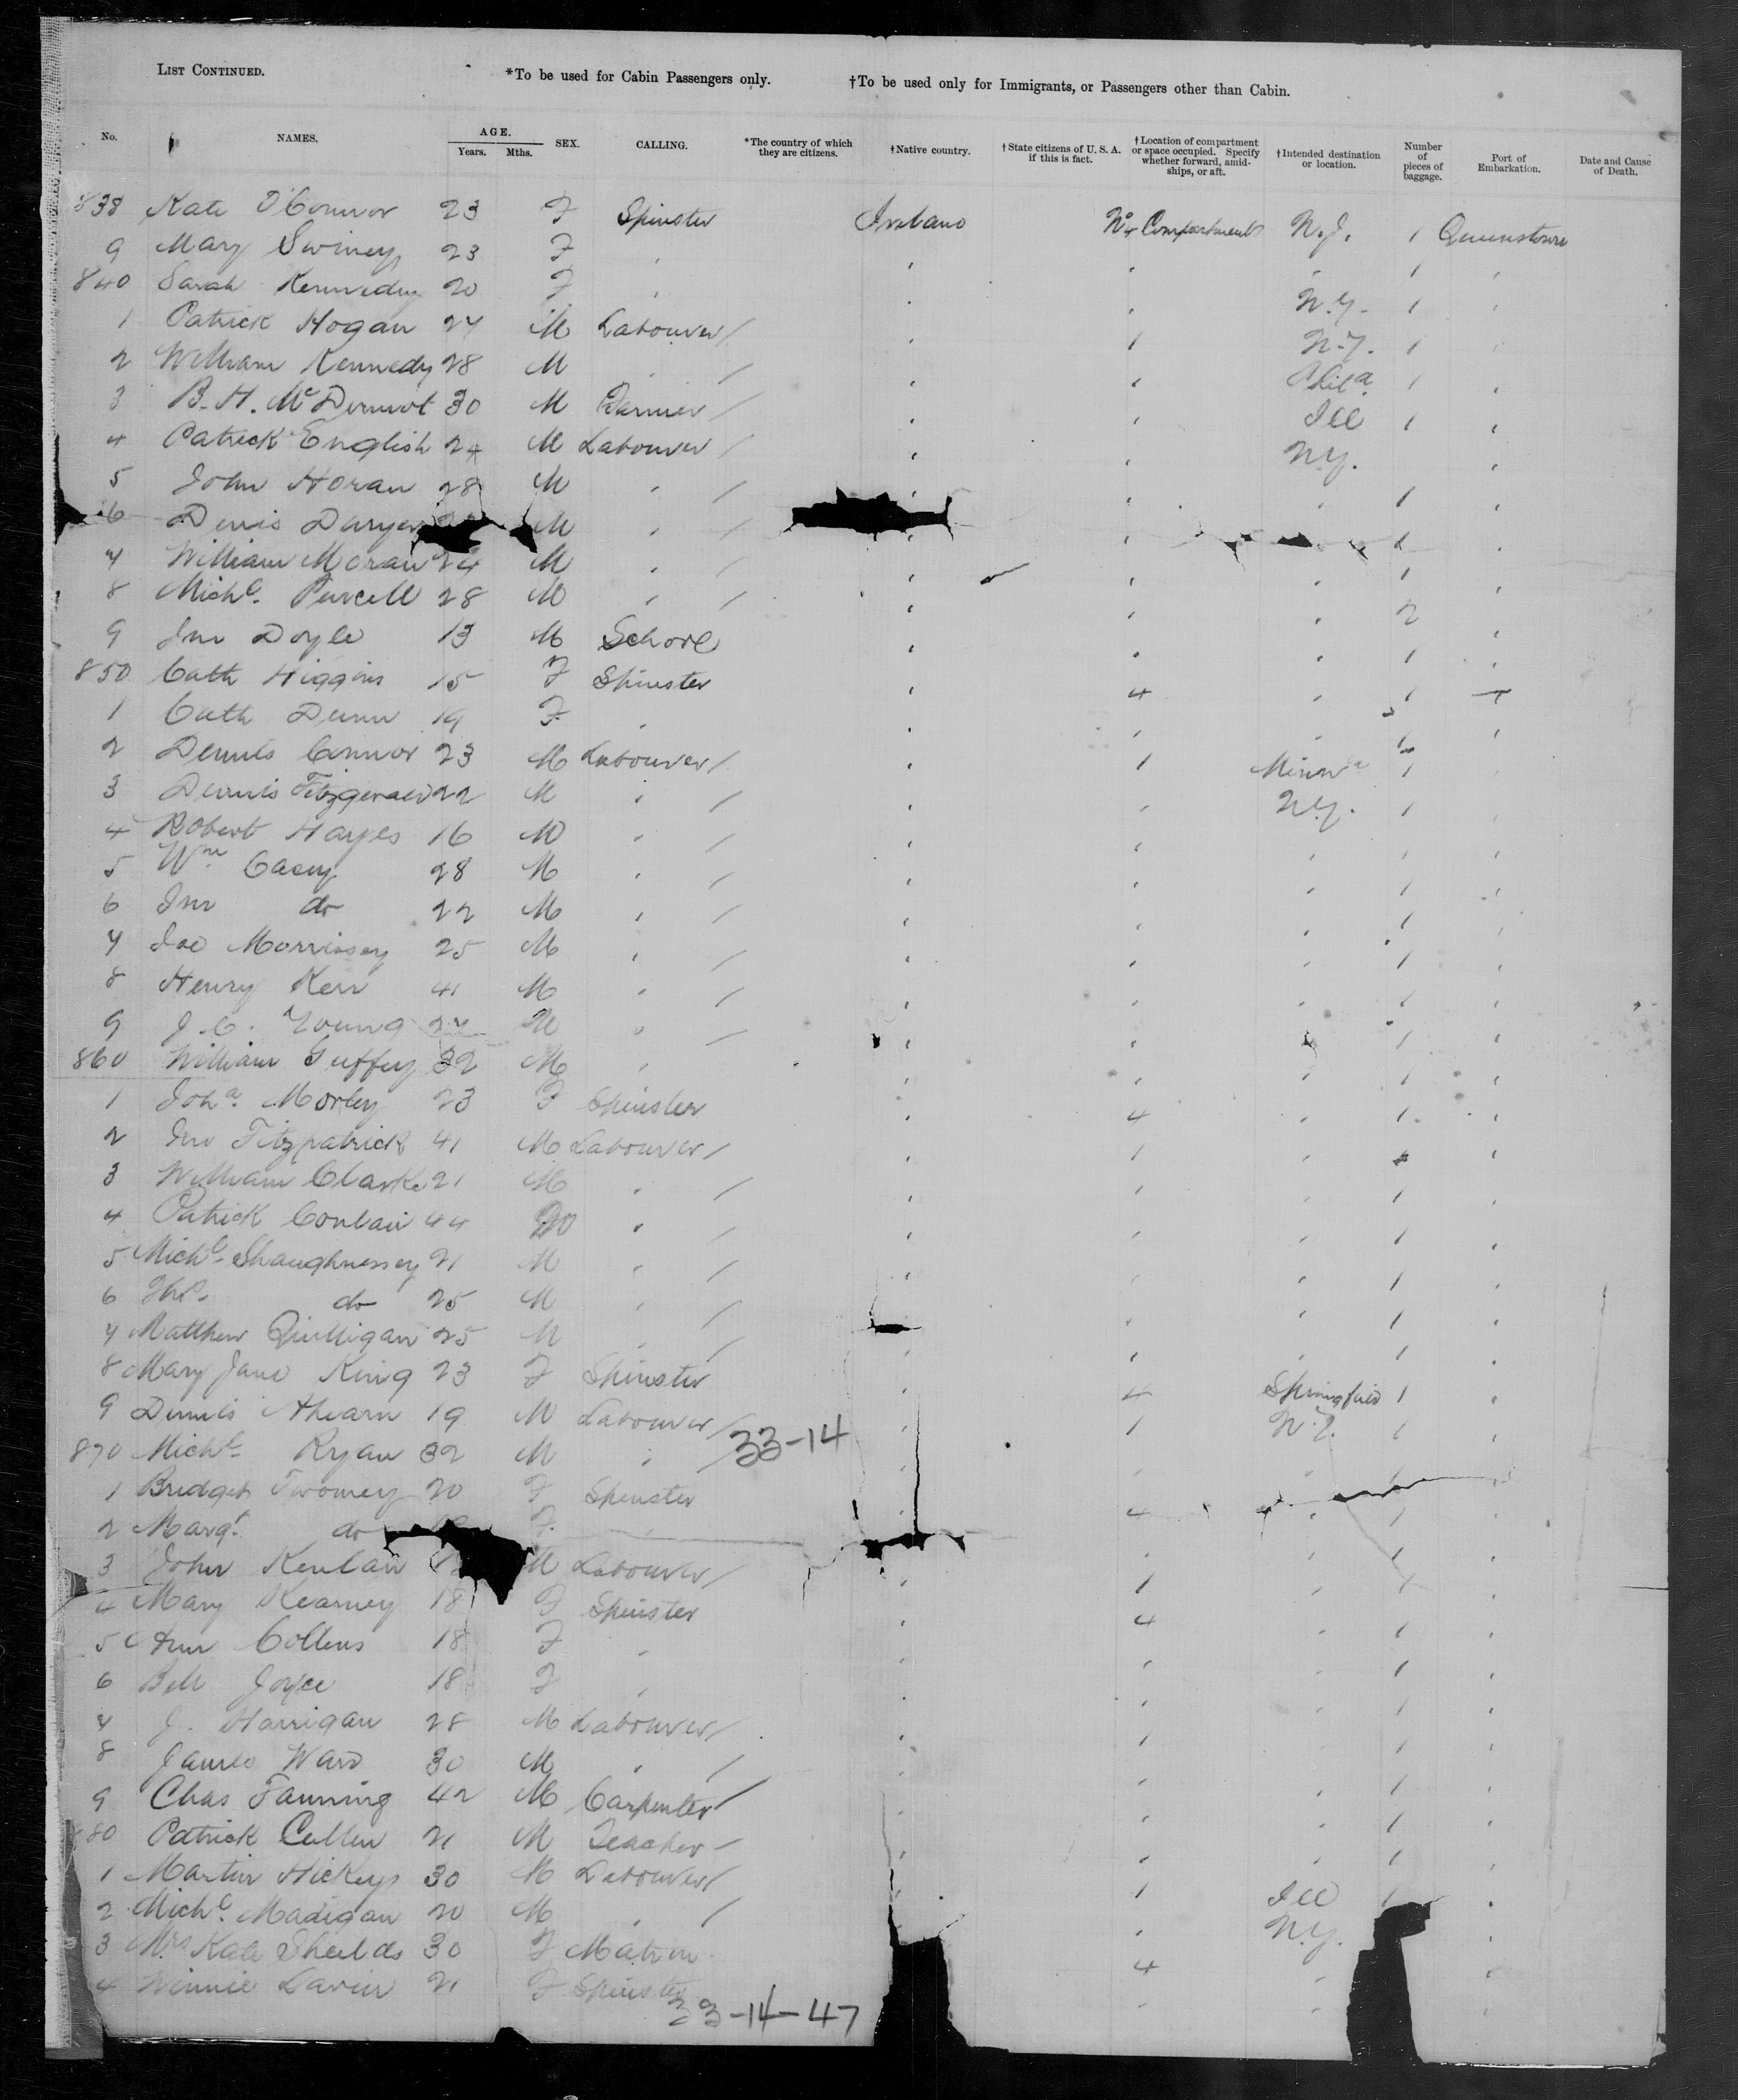 LIST CONTINUED. *To be used for Cabin Passengers only. †To be used only for Immigrants, or Passengers other than Cabin.
No. NAMES. AGE. Years. Mths. SEX. CALLING. *The country of which they are citizens. †Native country. †State citizens of U. S. A. if this is fact. †Location of compartment or space occupied. Specify whether forward, amidships, or aft. †Intended destination or location. Number of pieces of baggage. Port of Embarkation. Date and Cause of Death.
838 Kate O'Connor 23 F Spinster Ireland Compartment 1 Queenstown
9 Mary Swiney 23 F " " " " 1 "
840 Sarah Kennedy 20 F " " " N.Y. 1 "
1 Patrick Hogan 27 M Labourer / " 1 N.Y. 1 "
2 William Kennedy 28 M " / " " Phila 1 "
3 B. H. McDermot 30 M Farmer / " " Ill 1 "
4 Patrick English 24 M Labourer / " " N.Y. "
5 John Horan 28 M " / " " " 1 "
6 Denis M " / " " "
7 William Moran 24 M " / " " " 1 "
8 Michl. Purcell 28 M " / " " " 2 "
9 Jno Doyle 13 M School " " " 1 "
850 Cath Higgins 15 F Spinster " 4 " 1 "
1 Cath Dunn 19 F " " " " 1 "
2 Dennis Connor 23 M Labourer / " 1 Minna 1 "
3 Dennis Fitzgerald 22 M " / " " N.Y. 1 "
4 Robert Hayes 16 M " / " " " 1 "
5 Wm Casey 28 M " / " " " 1 "
6 Jno do 22 M " / " " " 1 "
7 Joe Morrissey 25 M " / " " " 1 "
8 Henry Kerr 41 M " / " " " 1 "
9 J. C. Young M " / " " " 1 "
860 William Guffey 32 M " " " " 1 "
1 Joha. Morley 23 F Spinster " 4 " 1 "
2 Jno Fitzpatrick 41 M Labourer / " 1 " "
3 William Clarke 21 M " / " " " 1 "
4 Patrick Conlan 44 M " / " " " 1 "
5 Michl. Shaughnessey 21 M " / " " " 1 "
6 Ths. do 25 M " / " " 1 "
7 Matthew Quilligan 25 M " / " " " 1 "
8 Mary Jane King 23 F Spinster " 4 Springfield 1 "
9 Dennis Ahearn 19 M Labourer / " 1 N.Y. 1 "
870 Michl. Ryan 32 M " / 33-14 " " " 1 "
1 Bridget Twomey 20 F Spinster " 4 " 1 "
2 Margt. do F " " " 1 "
3 John M Labourer / " 1 " 1 "
4 Mary Kearney 18 F Spinster " 4 " 1 "
5 Ann Collens 18 F " " " " 1 "
6 Joyce 18 F " " " " 1 "
7 J. Harrigan 28 M Labourer / " 1 " 1 "
8 James Ward 30 M " / " " " 1 "
9 Chas Fanning 42 M Carpenter / " " " 1 "
880 Patrick Cullen 21 M Teacher / " " " 1 "
1 Martin Hickey 30 M Labourer / " 1 Ill 1 "
2 Michl. Madigan 20 M " / " N.Y. "
3 Mrs Kate Sheilds 30 F Matron 4 " "
4 Winnie Lavin 21 F Spinster " " "
33-14-47